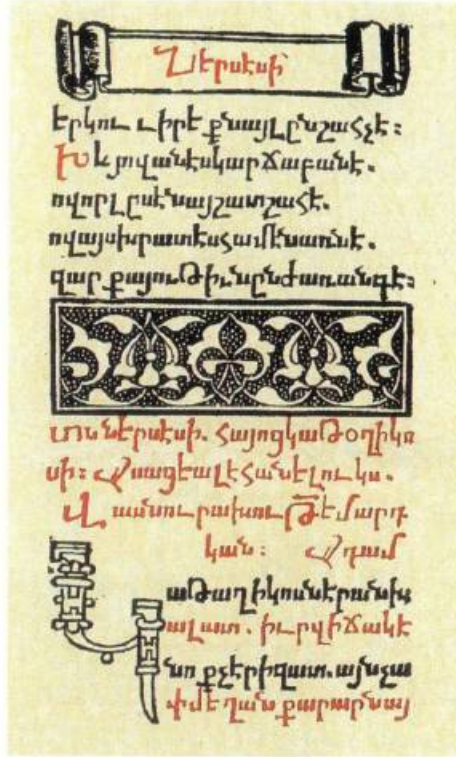 Ներսէսի
երկու տիրէ քնայլընշահչէ:
Խև յովանէսկարճաբանէ.
ովորլըսէնայշատշահէ.
ովայսխրատէսհամէնառնէ.
զարքայութիւնընժառանգէ:
տոններսէսի. հայոցկաթօղիկո
սի: Ասացեալէհանելուկս.
Վասնուրախութէմարդ
կան: Ադամ
իւրվիճակէ
նոքչէրիզատ.այնչա
փմէղանքարարնայ